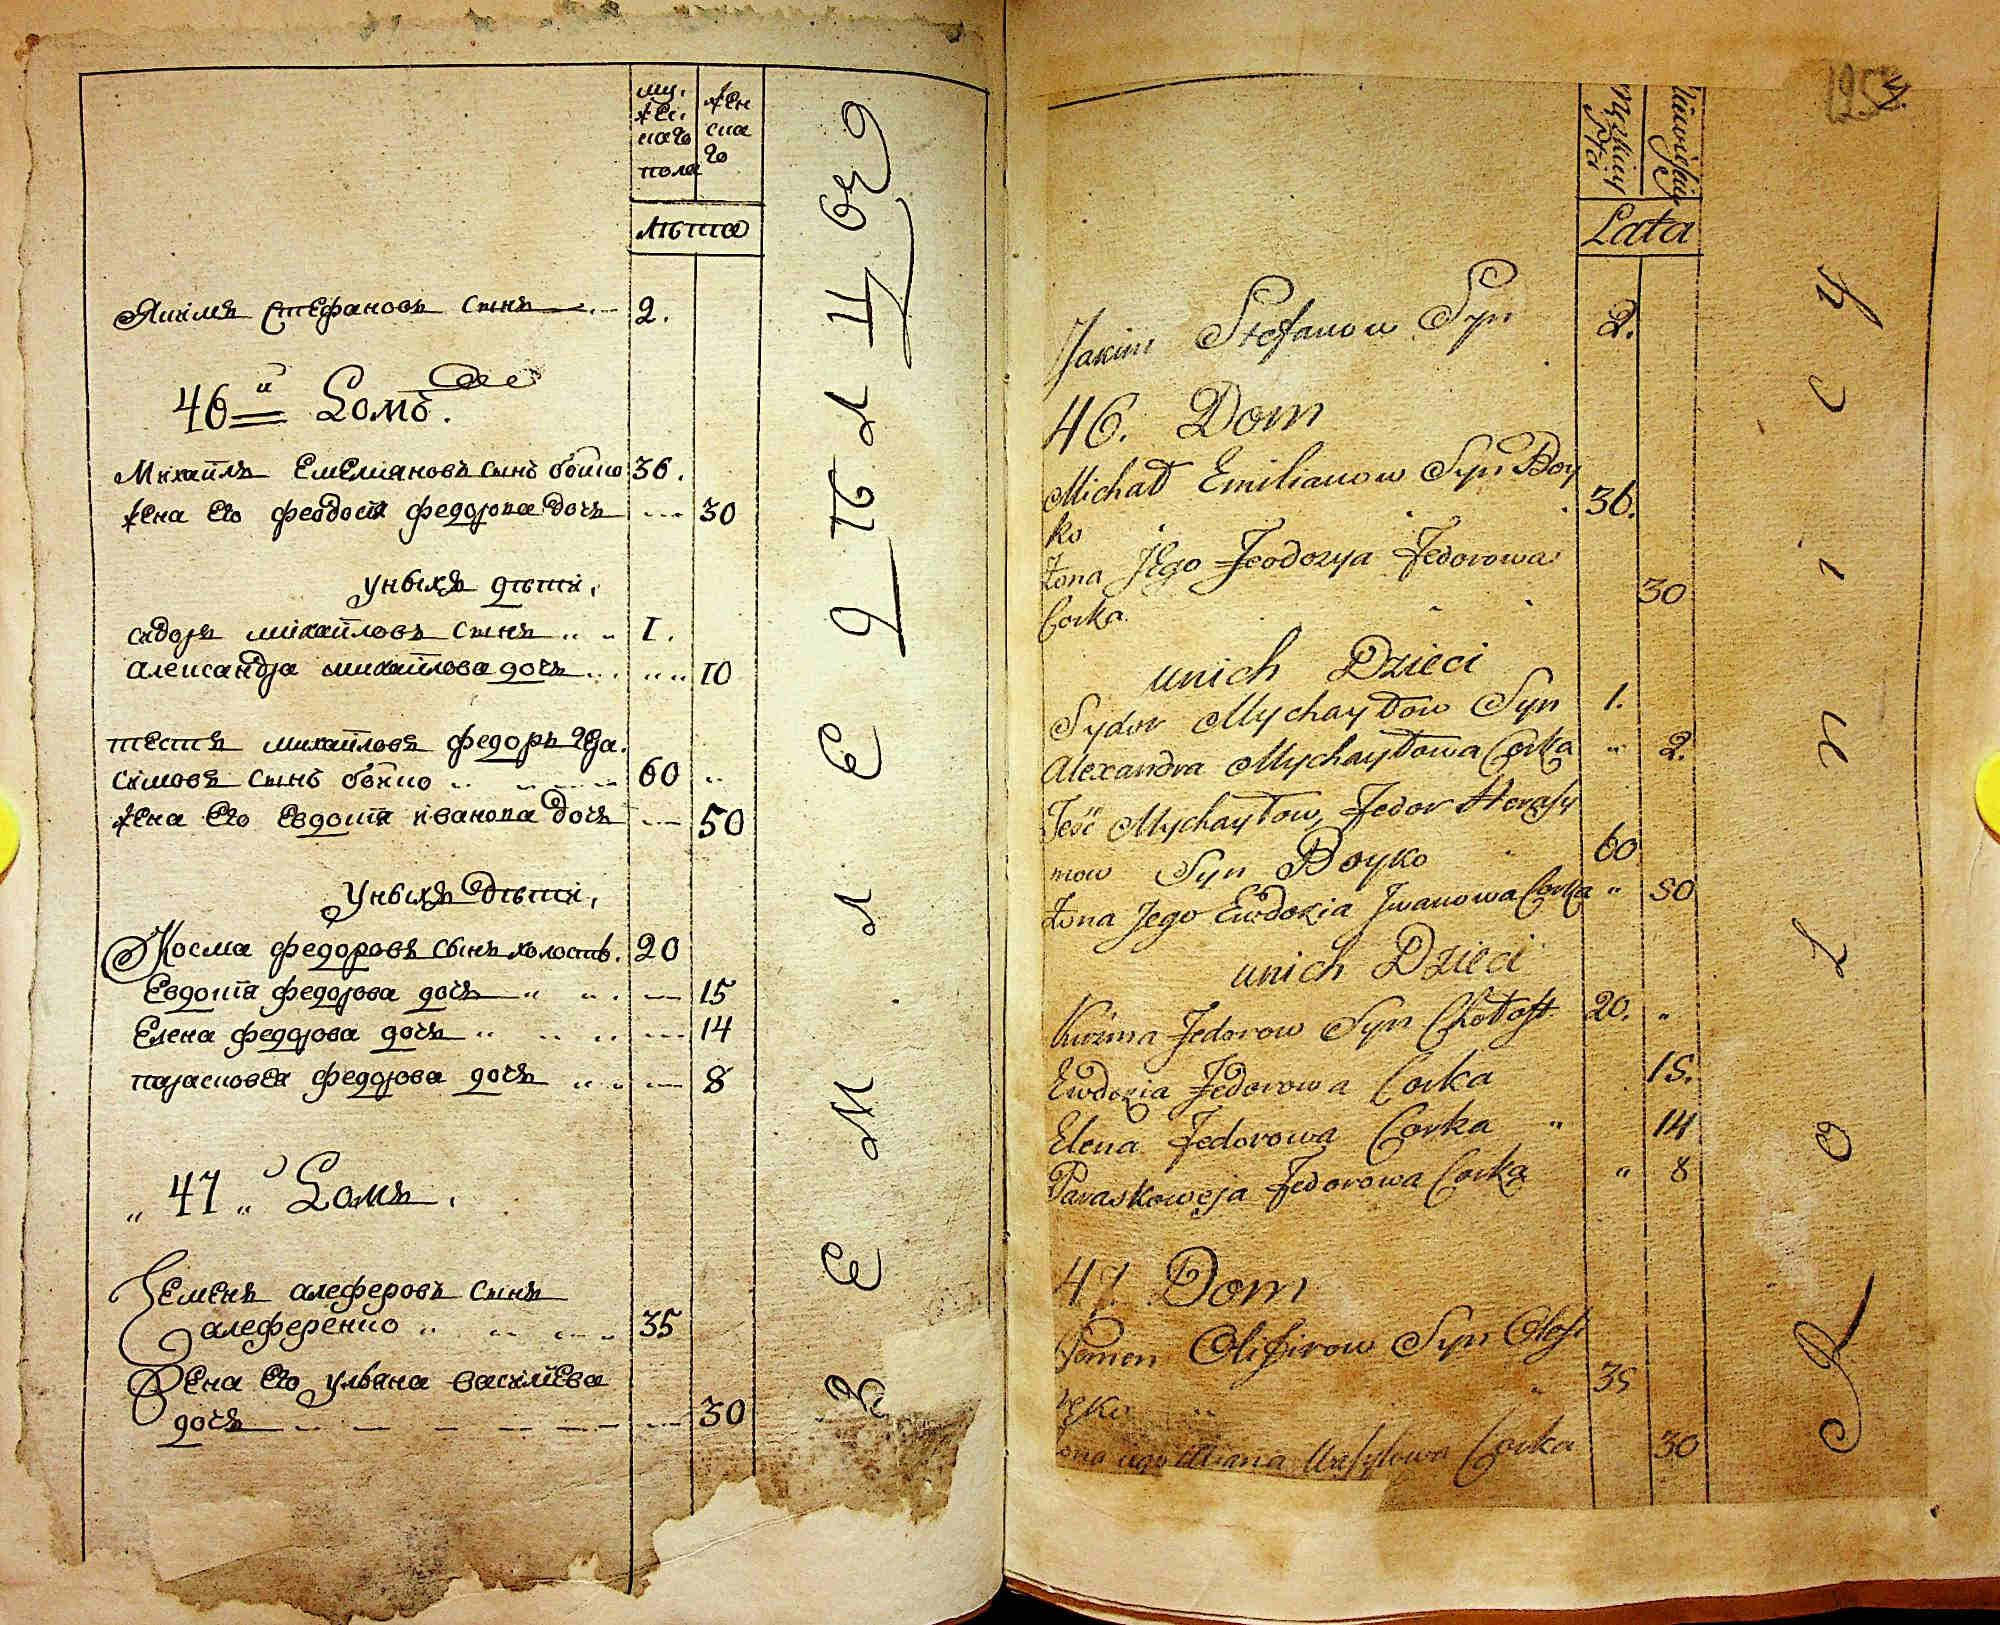 му.
жес.
каго
пола
жен
ска
го
лѣта
Якимъ Стефановъ сынъ 2.
46й Домъ.
Михайлъ Емелiановъ сынъ бойко 36.
жена его феодосiя федорова дочь 30
у нихъ дѣти,
сидоръ михайловъ сынъ 1.
александра михайлова дочь 10
тесть михайловъ федоръ гера
симовъ сынъ бойко 60
жена его евдокiя иванова дочь 50
у нихъ дѣти,
Косма федоровъ сынъ холостъ. 20
Евдокiя федорова дочь 15
Елена федорова дочь 14
парасковея федорова дочь 8
„ 47 „ Домъ.
Семенъ алеферовъ сынъ
алеференко 35
Жена его ульяна василiева
дочь 30
З Е М Л Е Д Ѣ Л Ц О В
Męzkiey
Płci
Lata
Jakim Stefanow Syn 2.
46. Dom
Michał Emilianow Syn Boy
ko 36.
Żona Jego Feodozya Fedorowa
Corka 30
unich Dzieci
Sydor Mychayłow Syn 1.
Alexandra Mychayłowa Corka „ 2.
Teść Mychayłow, Fedor Herasy
mow Syn Boyko 60
Żona Jego Ewdokia Jwanowa Corka „ 50
unich Dzieci
Kuźma Fedorow Syn Chołost 20. „
Ewdokia Fedorowa Corka 15.
Elena Fedorowa Corka „ 14
Paraskoweja Fedorowa Corka „ 8
47. Dom
Semen Olifirow Syn Olofi
reko 35
ona iego Uliana Wasylowa Corka 30
R o l n i c y